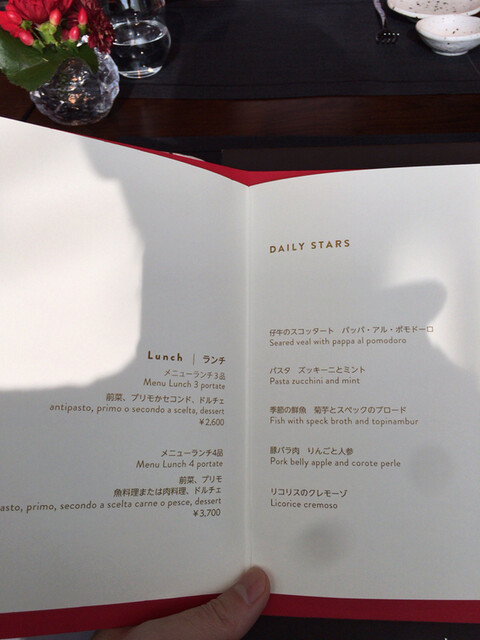 Lunch | ランチ
メニューランチ3品
Menu Lunch 3 portate
前菜、プリモかセコンド、ドルチェ
antipasto, primo o secondo a scelta, dessert
¥2,600
メニューランチ4品
Menu Lunch 4 portate
前菜、プリモ
魚料理または肉料理、ドルチェ
asto, primo, secondo a scelta carne o pesce, dessert
¥3,700
DAILY STARS
仔牛のスコッタート パッパ・アル・ポモドーロ
Seared veal with pappa al pomodoro
パスタ ズッキーニとミント
Pasta zucchini and mint
季節の鮮魚 菊芋とスペックのブロード
Fish with speck broth and topinambur
豚バラ肉 りんごと人参
Pork belly apple and corote perle
リコリスのクレモーゾ
Licorice cremoso